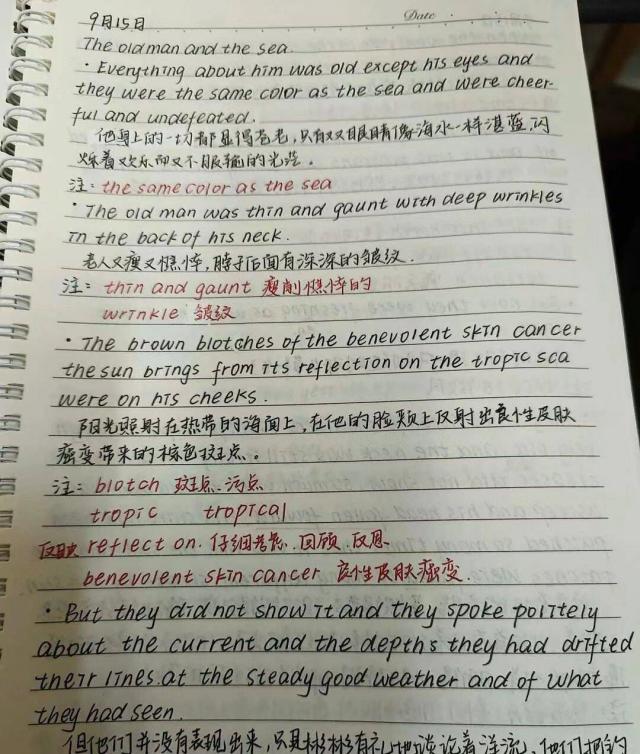 9月15日
Date
The old man and the sea.
· Everything about him was old except his eyes and
they were the same color as the sea and were cheer-
ful and undefeated.
他身上的一切都显得苍老,只有双眼睛像海水一样湛蓝,闪
烁着欢乐而又不服输的光芒。
注: the same color as the sea
· The old man was thin and gaunt with deep wrinkles
in the back of his neck.
老人又瘦又憔悴,脖子后面有深深的皱纹.
注: thin and gaunt 瘦削憔悴的
wrinkle 皱纹
· The brown blotches of the benevolent skin cancer
the sun brings from its reflection on the tropic sea
were on his cheeks.
阳光照射在热带的海面上,在他的脸颊上反射出良性皮肤
癌变带来的棕色斑点。
注: blotch 斑点.污点
tropic tropical
反映 reflect on. 仔细考虑.回顾.反思
benevolent skin cancer 良性皮肤癌变.
· But they did not show it and they spoke politely
about the current and the depths they had drifted
their lines at the steady good weather and of what
they had seen.
但他们并没有表现出来,只是彬彬有礼地谈论着洋流,他们把钓